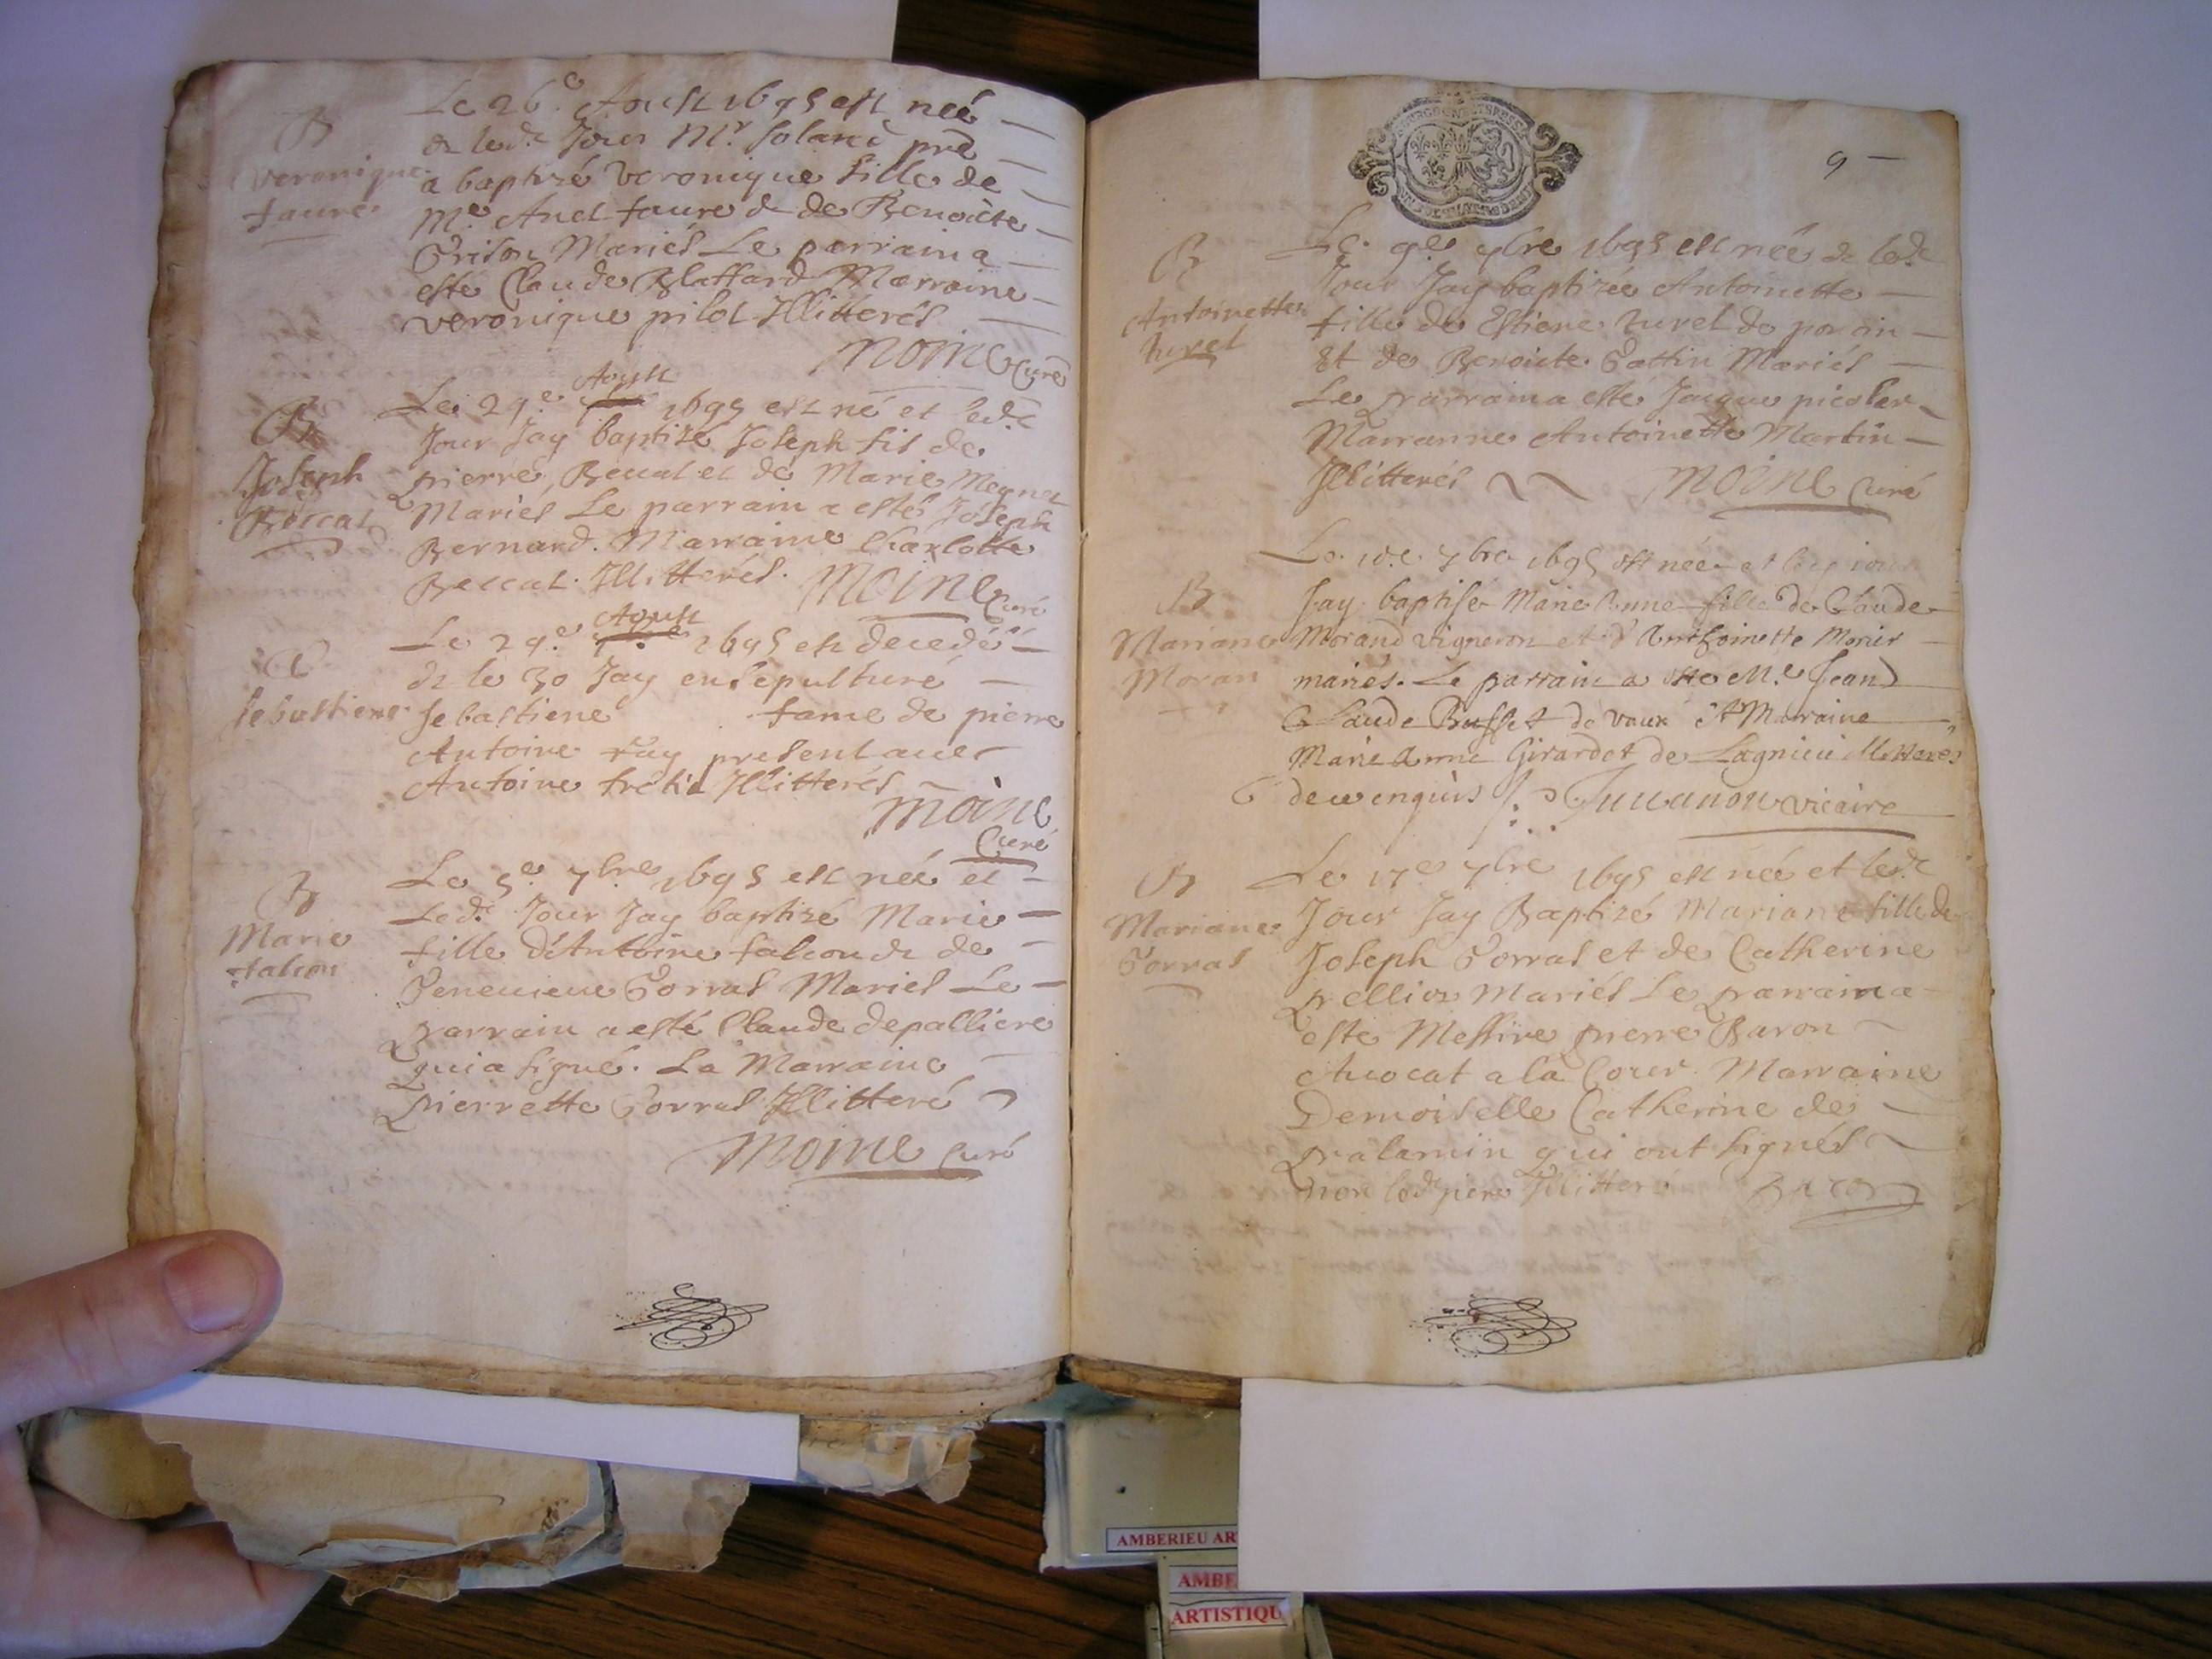 B
veronique
faure
Le 26.e Aoust 1695 est neé
& led.t Jour Mr. Soland prê
a baptisé veronique fille de
Me. Anet faure & de Benoicte
Mariés Le parrain a
esté Claude Blattard Marraine
veronique pilot Illitterés
Moine Curé
B
Joseph
Beccat
Le 29.e Aoust 1695 est né et led.t
Jour Jay baptisé Joseph fils de
pierre, Beccat et de Marie Megnet
Mariés Le parrain a esté Joseph
Bernard. Marraine Charlotte
Beccat. Illitterés. Moine Curé
Sebastiene
Le 29.e Aoust 1695 est decedée
& le 30 Jay ensepulturé
Sebastiene fame de pierre
Antoine present avec
Antoine Illitterés
Moine
Curé
B
Marie
falcon
Le 5.e 7bre 1695 est née et
Led.t Jour Jay baptisé Marie
fille d'Antoine falcon & de
Genevieve Gorras Mariés Le
parrain a esté Claude depalliere
qui a signé. La Marraine
pierrette Gorras Illitteré
Moine Curé
9
B
Antoinette
turel
Le 9.e 7bre 1695 est née & led.t
Jour Jay baptisée Antoinette
fille de Estiene turel de
Et de Benoicte Gattin Mariés
Le parrain a esté Jacque
Marranne Antoinette Martin
Illitterés Moine Curé
B
Mariane
Moran
Le 10.e 7bre 1695 est née et
Jay baptisé Marie Anne fille de Claude
Morand vigneron et d'Anthoinette
mariés. Le parrain a esté Me Jean
Claude Buffet de vaux Et Marraine
Marie Anne Girardot de Lagnieu Illitteres
de ce enquis vicaire
B
Mariane
Gorras
Le 17.e 7bre 1695 est née et led.t
Jour Jay Baptizé Mariane fille de
Joseph Gorras et de Catherine
pellion Mariés Le parrain a
esté Messire pierre Baron
Avocat a la Cour Marraine
Demoiselle Catherine de
qui ont signés
non led. pere Illitteré Baron
AMBERIEU AR
AMBE
ARTISTIQU